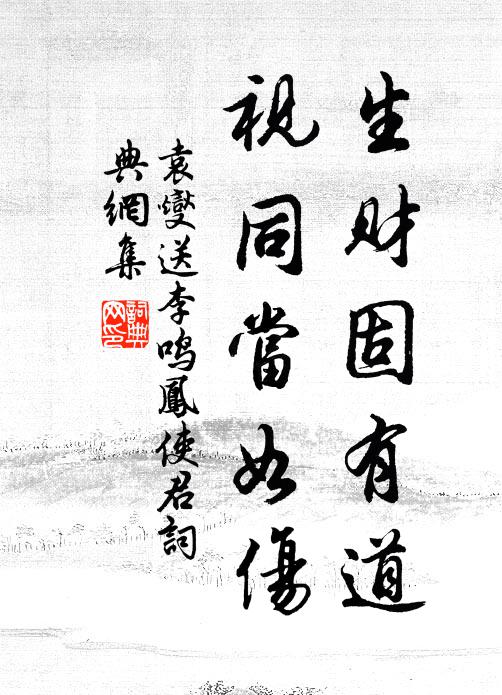 生财固有道
视同當如傷
袁燮送李鸣鳳使君詞
典網集
詞典网印